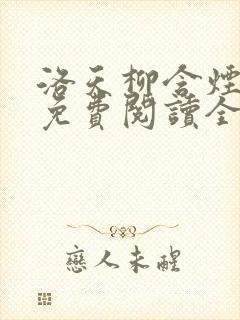 洛天柳含煙
免費閱讀全
戀人未醒